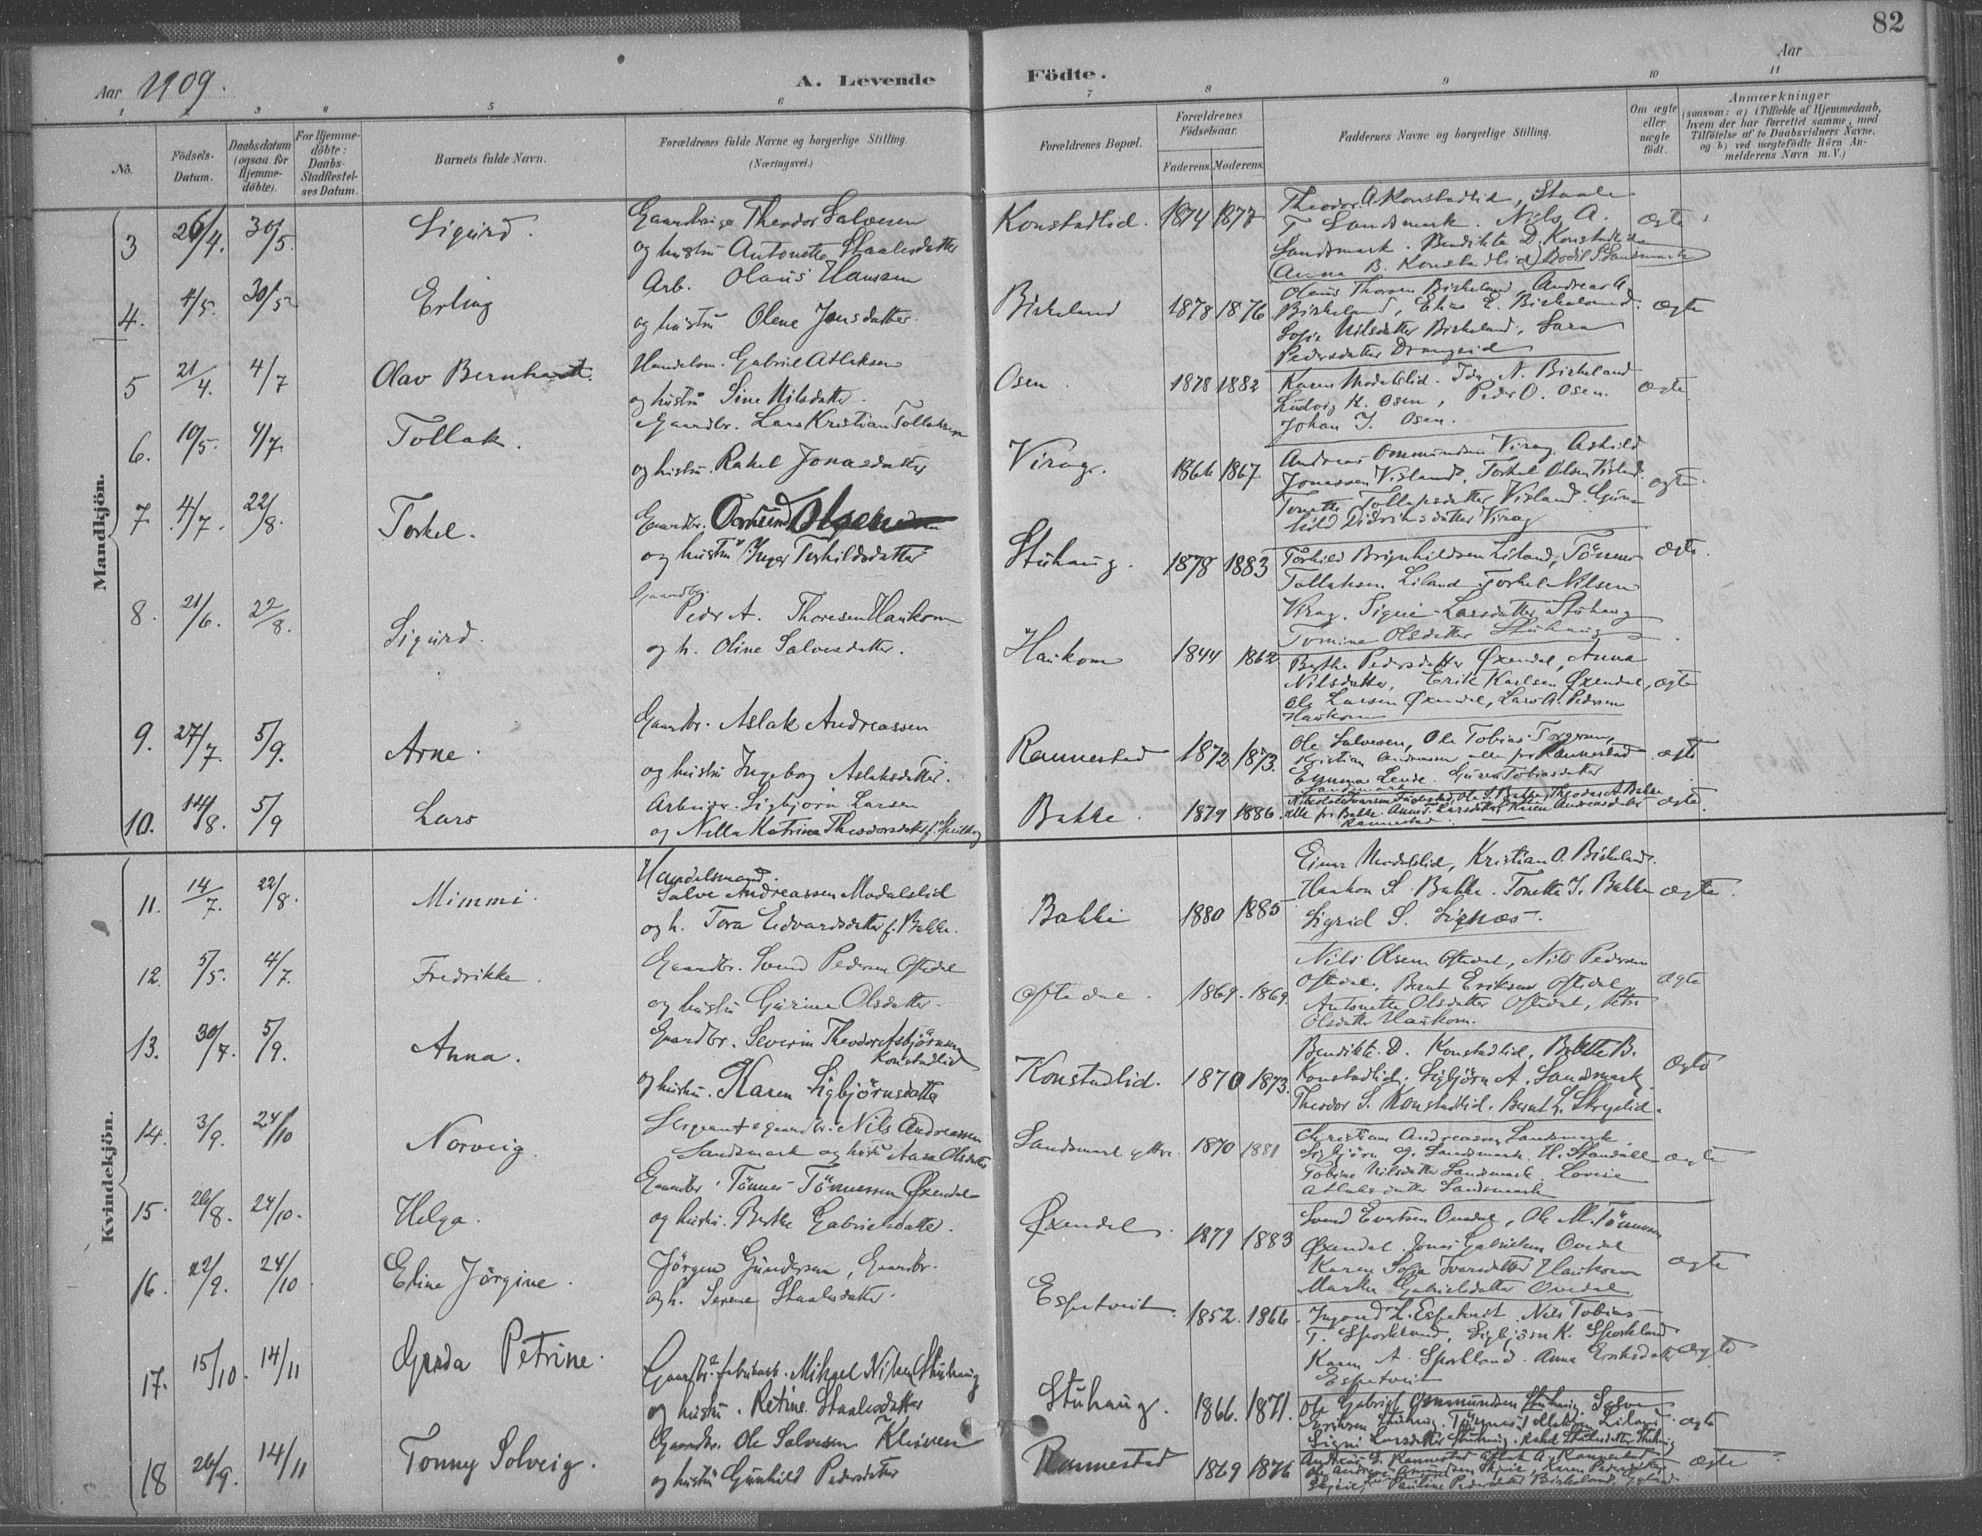 82
Aar 1909.
A. Levende Födte.
Aar
1 3 4 5 6 7 8 9 10 11
No.
Födsels-Datum.
Daabsdatum (ogsaa for Hjemme-döbte).
For Hjemme-döbte: Daabs-Stadfæstel-ses Datum.
Barnets fulde Navn.
Forældrenes fulde Navne og borgerlige Stilling. (Næringsvei.)
Forældrenes Bopæl.
Forældrenes Födselsaar.
Faderens. Moderens.
Faddernes Navne og borgerlige Stilling.
Om ægte eller uægte födt.
Anmærkninger
(saasom: a) i Tilfælde af Hjemmedaab, hvem der har forrettet samme, med Tilföielse af to Daabsvidners Navne, og b) ved uægtefödte Börn An-melderens Navn m. V.)
Mandkjön.
3 26/4. 30/5. Sigurd. Theodor Salvesen
og hustru Antonette Staalesdatter
Konstadlid. 1874 1877
Theodor A Konstadlid, Staale
T. Sandsmark. Nils A.
Sandsmark. Bendikte D. Konstadlid
Anna B. Konstadlid, Bodil S Sandsmark
ægte
4. 4/5. 30/5 Erling Arb. Olaus Hanssen
og hustru Olene Jensdatter.
Birkeland 1878 1876
Olaus Thorsen Birkeland, Andreas A.
Birkeland, Elias E. Birkeland.
Sofie Nilsdatter Birkeland, Sara
Pedersdatter Drangeid
ægte
5 21/4. 4/7 Olav Bernhardt. Handelsm. Gabriel Atlaksen
og hustru Sine Nilsdatter.
Osen. 1878 1882
Karen Modalslid. N. Birkeland
Ludvig K. Osen, Peder O. Osen.
Johan J. Osen.
ægte
6. 10/5. 4/7. Tollak. Gaardbr. Lars Kristian Tollaksen
og hustru. Rakel Jonasdatter
Virag. 1866 1867.
Andreas Ommundsen Virag. Askild
Jonassen Visland, Torkel Olsen Visland.
Tonette Tollaksdatter Visland. Guni-
hild Didriksdatter Virag
ægte.
7. 4/7. 22/8. Torkel. Gaardbr. Olsen
og hustru Inger Torkildsdatter
Stuhaug. 1878 1883
Torkild Brynhildsen Liland, Tönnes
Tollaksen Liland Torkel Nilsen
Virag. Signe Larsdatter Stuhaug
Tomine Olsdatter Stuhaug
ægte.
8. 21/6. 22/8. Sigurd. Gaardbr.
Peder A. Thoresen Haukom
og h. Oline Salvesdatter.
Haukom 1844 1862.
Berthe Pedersdatter Øxendal, Anna
Nilsdatter, Erik Karlsen Øxendal,
Ole Larsen Øxendal, Lars A. Pedersen
Haukom
ægte
9. 27/7. 5/9. Arne. Gaardbr. Aslak Andreassen
og hustru Ingeborg Aslaksdatter.
Rannestad 1872 1873.
Ole Salvesen, Ole Tobias Torgersen,
Kristian Andreassen alle fra Rannestad
Emma Lende. Tobiasdatter
Sandsmark
ægte
10. 14/8. 5/9 Lars Arbeider. Sigbjörn Larsen
og Nilla Katrina Theodorsdatter f.
Bakke. 1879 1886.
Ole S. Bakke, Theodor A Bakke
alle fra Bakke. Larsdatter, Andreasdatter
Rannestad
ægte.
Kvindekjön.
11. 14/7. 22/8. Mimmi. Handelsmand.
Salve Andreassen Modalslid
og h. Tora Edvardsdatter f. Bakke.
Bakke 1880 1885
Einar Modalslid, Kristian O. Birkeland.
Haakon S. Bakke. Tonette J. Bakke
Sigrid S. Signæs.
ægte.
12. 5/5. 4/7. Fredrikke. Gaardbr. Svend Pedersen Oftedal
og hustru Gurine Olsdatter.
Oftedal. 1869. 1869.
Nils Olsen Oftedal, Nils Pedersen
Oftedal, Bernt Eriksen Oftedal
Antonette Olsdatter Oftedal, Petra
Olsdatter Haukom.
ægte
13. 30/7. 5/9. Anna. Gaardbr. Severin Theodor Asbjörnsen
Konstadlid
og hustru. Karen Sigbjörnsdatter
Konstadlid. 1870 1873.
Bendikte D. Konstadlid, B.
Konstadlid. Sigbjörn A. Sandsmark,
Theodor S. Konstadlid. Bernt L. Skrydlid.
ægte
14. 3/9. 24/10 Norveig. Sergeant & gaardbr. Nils Andreassen
Sandsmark og hustru Aasa Olsdatter
Sandsmark yttre. 1870 1881
Christian Andreassen Sandsmark
Sigbjörn G. Sandsmark.
Tobine Nilsdatter Sandsmark, Lovise
Atlaksdatter Sandsmark
ægte
15. 26/8. 24/10. Helga. Gaardbr. Tönnes Tönnessen Øxendal
og hustru. Berthe Gabrielsdatter.
Øxendal 1879 1883
Svend Evertsen Ovedal, Ole M. Tönnessen
Øxendal. Jonas Gabrielsen Ovedal
Karen Sofie Iversdatter Haukom
Marthe Gabrielsdatter Ovedal
ægte
16. 22/9. 24/10. Eline Jörgine. Jörgen Gundersen, Gaardbr.
og h. Serene Staalesdatter.
Espetveit 1852. 1866.
L. Espetveit. Nils Tobias
T. Sporkland, Sigbjörn K. Sporkland
Karen A. Sporkland. Anna Eriksdatter
Espetveit
ægte
17. 15/10. 14/11 Gerda Petrine. Gaardbr. & fabrikarb. Mikael Nilsen Stuhaug
og hustru. Retine Staalesdatter
Stuhaug. 1866. 1871.
Ole Gabriel Ommundsen Stuhaug. Salve
Eriksen Stuhaug. Tönnes Tollaksen Liland
Signi Larsdatter Stuhaug. Rakel Staalesdatter Stuhaug
ægte
18 26/9. 14/11 Tonny Solveig. Gaardbr. Ole Salvesen Kleiven
og hustru Gunhild Pedersdatter
Rannestad 1869 1876
Andreas G. Rannestad Aslak A. Rannestad
Pauline Pedersdatter Birkeland,
ægte